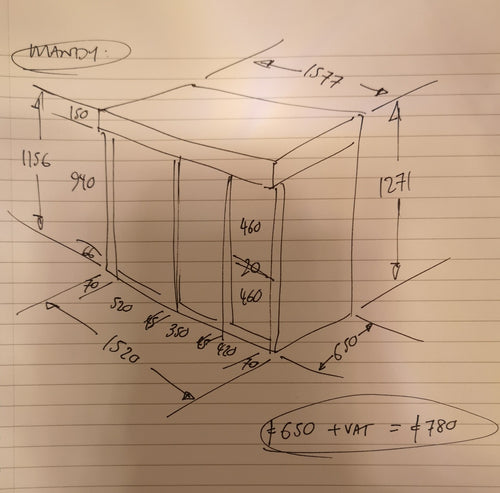 MANDY:
1577
150
1156
940
1271
460
20
460
66
70
520
45
350
45
420
70
1520
650
£650 + VAT = £780